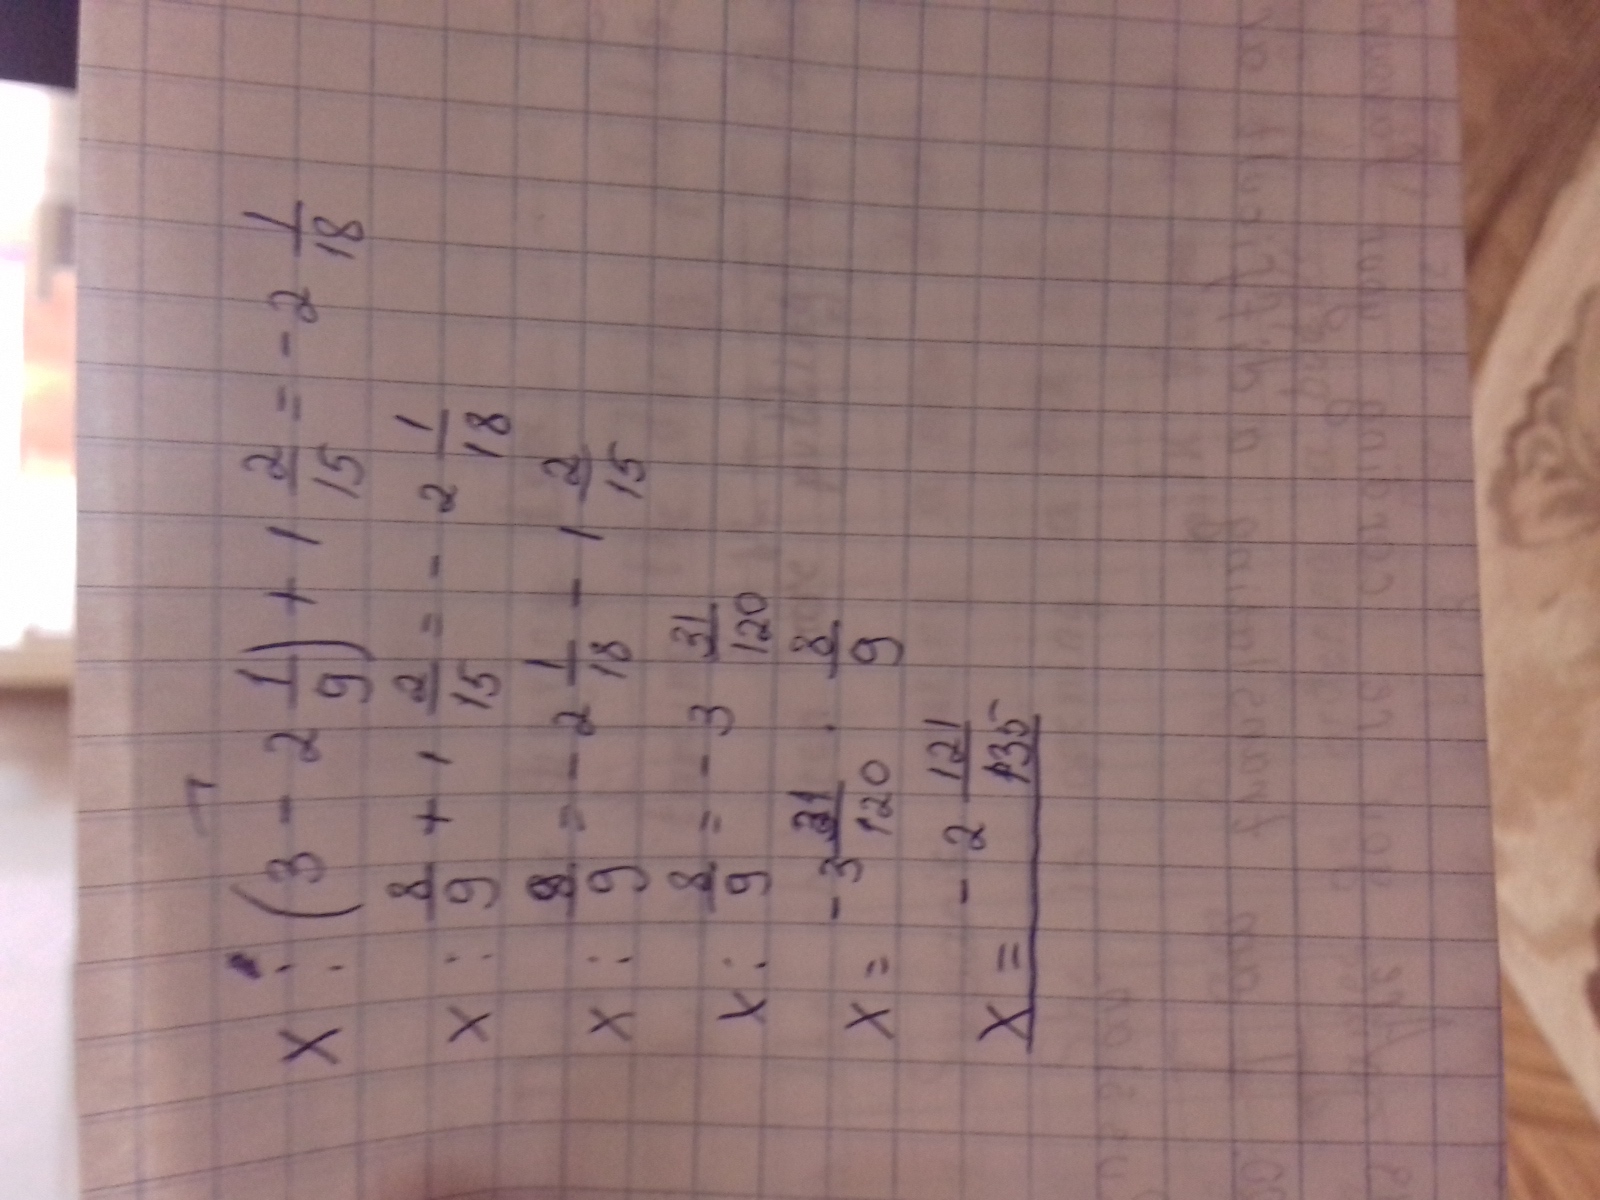 x : (3 - 2 1/9) + 1 2/15 = -2 1/18
x : 8/9 + 1 2/15 = -2 1/18
x : 8/9 = -2 1/18 - 1 2/15
x : 8/9 = -3 31/120
x = -3 31/120 · 8/9
x = -2 121/135